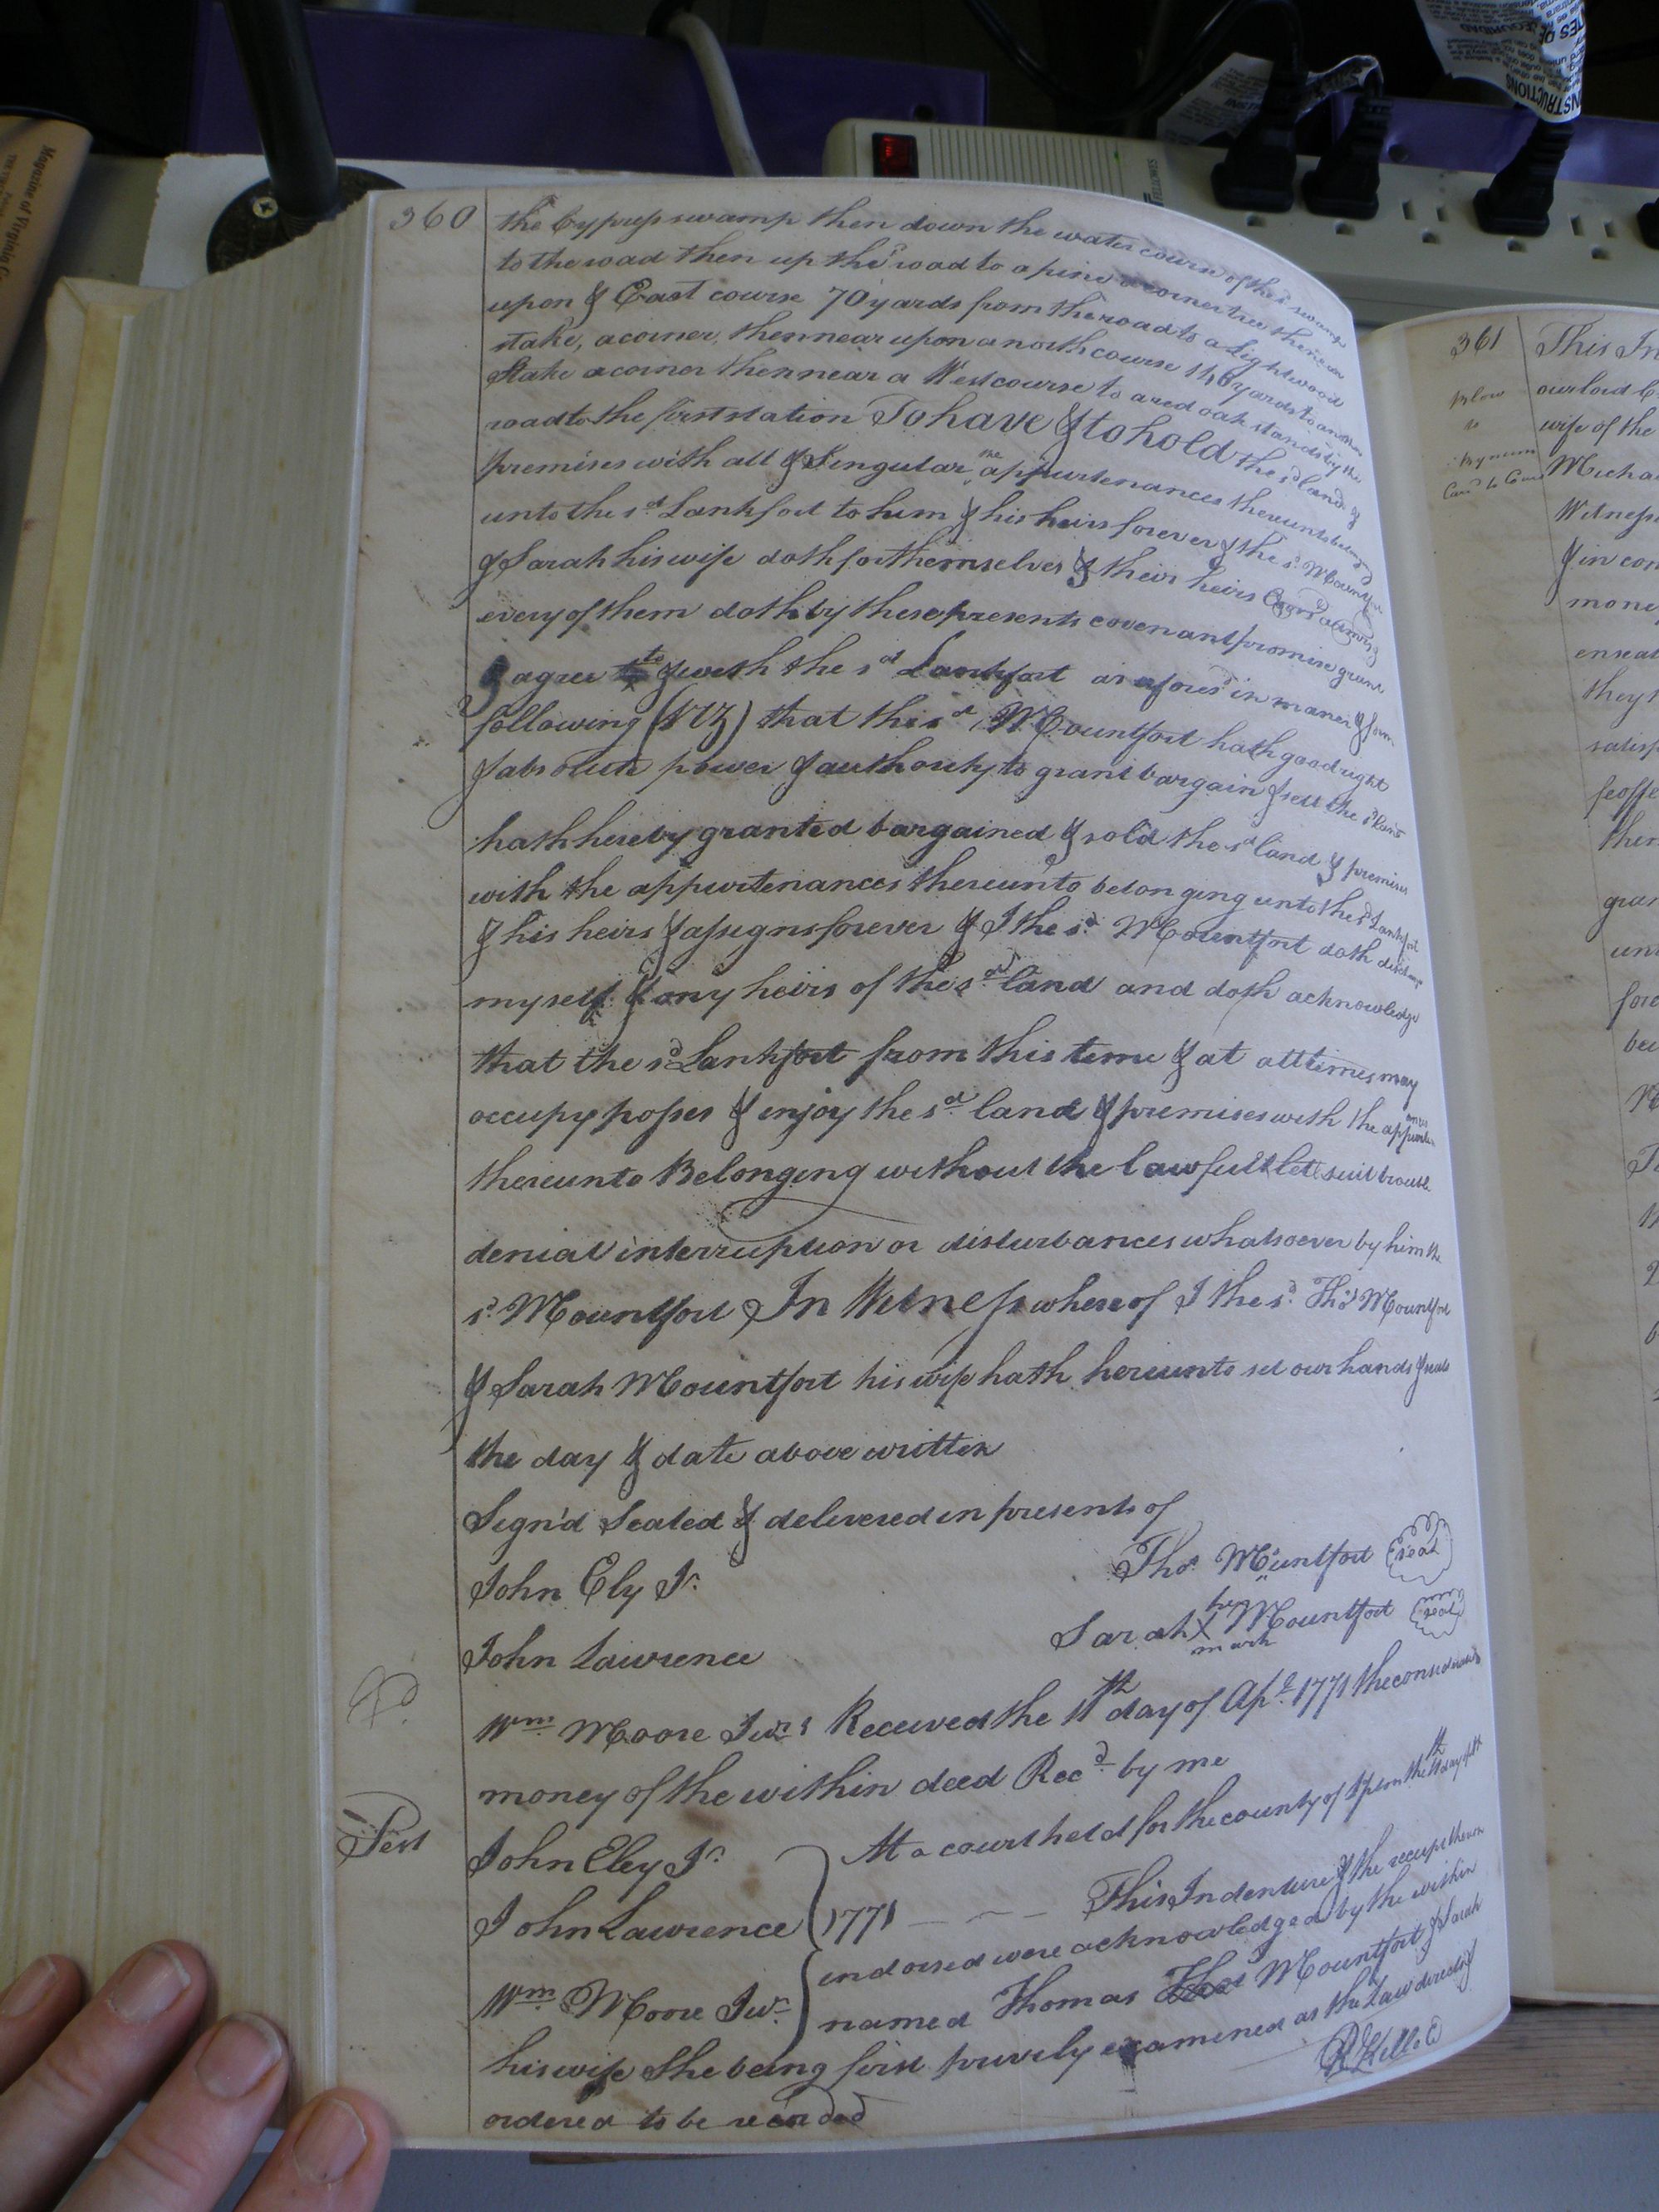 360
the Cypress swamp then down the water course of the sd. swamp
to the road then up the sd road to a pine a corner tree thence
upon & East course 70 yards from the road to a Lightwood
stake, a corner, then near upon a north course yards to another
Stake a corner then near a West course to a red oak stands by the
road to the first station To have & to hold the sd. land &
premises with all & Singular the appurtenances thereunto belong
unto the sd. Lankfort to him & his heirs forever & the sd. Mountfort
& Sarah his wife doth for themselves & their heirs
every of them doth by these presents covenant promise grant
& agree to & with the sd Lankfort as afores'd in maner & form
following (VIZ) that this sd. Mountfort hath good right
& absolute power & authority to grant bargain & sell the sd. land
hath hereby granted bargained & sold the sd land & premises
with the appurtenances thereunto belonging unto the sd. Lankfort
& his heirs & assigns forever & I the sd. Mountfort doth discharge
myself & any heirs of the sd. land and doth acknowledge
that the sd Lankfort from this time & at all times may
occupy posses & enjoy the sd. land & premises with the appurtenances
thereunto Belonging without the lawfull let suit trouble
denial interruption or disturbances whatsoever by him the
sd. Mountfort In Witness whereof I the sd. Thos Mountfort
& Sarah Mountfort his wife hath hereunto set our hands & seals
the day & date above written
Sign'd Sealed & delivered in presents of
John Ely Jr.
Thos. Mountfort seal
John Lawrence
Sarah her X mark Mountfort seal
Wm. Moore Jur. Received the 11th day of Apl. 1771 the consideration
money of the within deed Recd. by me
Test
John Eley Jr.
John Lawrence
Wm. Moore Jur.
At a court held for the county of the day of
1771 This Indenture & the receipt thereon
indorsed were acknowledged by the within
named Thomas Mountfort & Sarah
his wife She being first privily examened as the Law directs &
ordered to be recorded
361
This In
our lord
wife of the
Micha
Witness
& in con
money
enseal
they
satisf
feoffe
then
gran
unt
fore
Magazine of Virginia
FELLOWES
INSTRUCTIONS